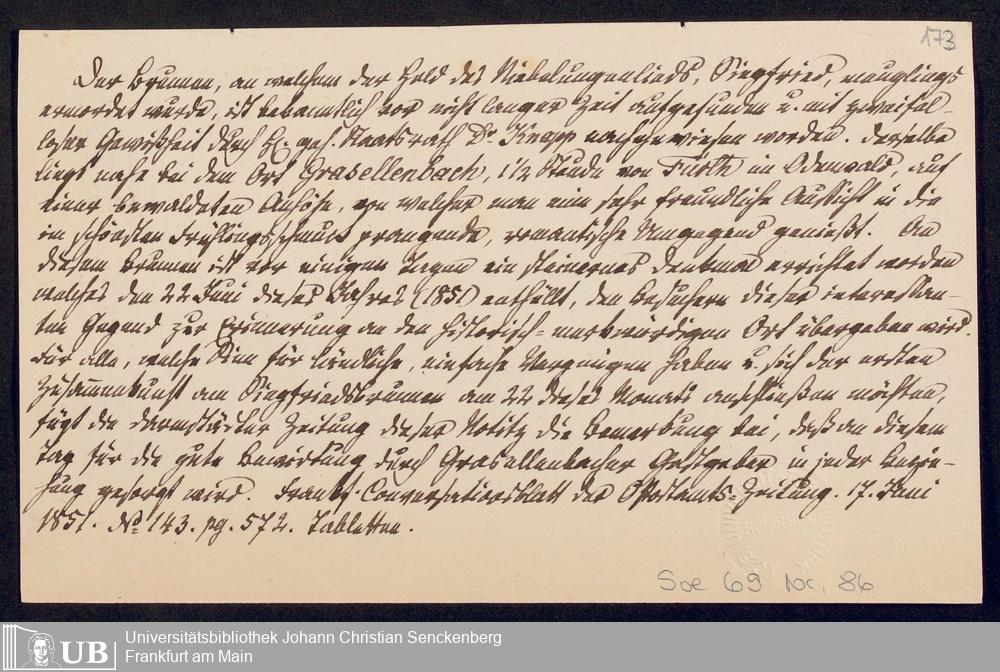 173
Der Brunnen, an welchem der Held des Niebelungenlieds, Siegfried, meuchlings
ermordet wurde, ist bekanntlich vor nicht langer Zeit aufgefunden u. mit zweifel-
loser Gewißheit durch H. geh. Staatsrath Dr. Knapp nachgewiesen worden. Derselbe
liegt nahe bei dem Ort Grasellenbach, 1 1/2 Stunde von Fürth im Odenwald, auf
einer bewaldeten Anhöhe, von welcher man eine sehr freundliche Aussicht in die
im schönsten Frühlingsschmuck prangende, romantische Umgegend genießt. An
diesem Brunnen ist vor einigen Tagen ein steinernes Denkmal errichtet worden
welches den 22 Juni dieses Jahres (1851) enthüllt, den Besuchern dieser interessan-
ten Gegend zur Erinnerung an den historisch-merkwürdigen Ort übergeben wird.
Für alle, welche Sinn für ländliche, einfache Vergnügen haben u. sich der ersten
Zusammenkunft am Siegfriedsbrunnen am 22 dieses Monats anschließen möchten,
fügt die Darmstädter Zeitung dieser Notitz die Bemerkung bei, daß an diesem
Tag für die gute Bewirthung durch Grasellenbacher Gastgeber in jeder Bezie-
hung gesorgt wird. Frankf. Conversationsblatt der OPostamts-Zeitung. 17. Juni
1851. No 143. pg. 572. Tabletten.
Soe 69 Nr. 86
UB
Universitätsbibliothek Johann Christian Senckenberg
Frankfurt am Main